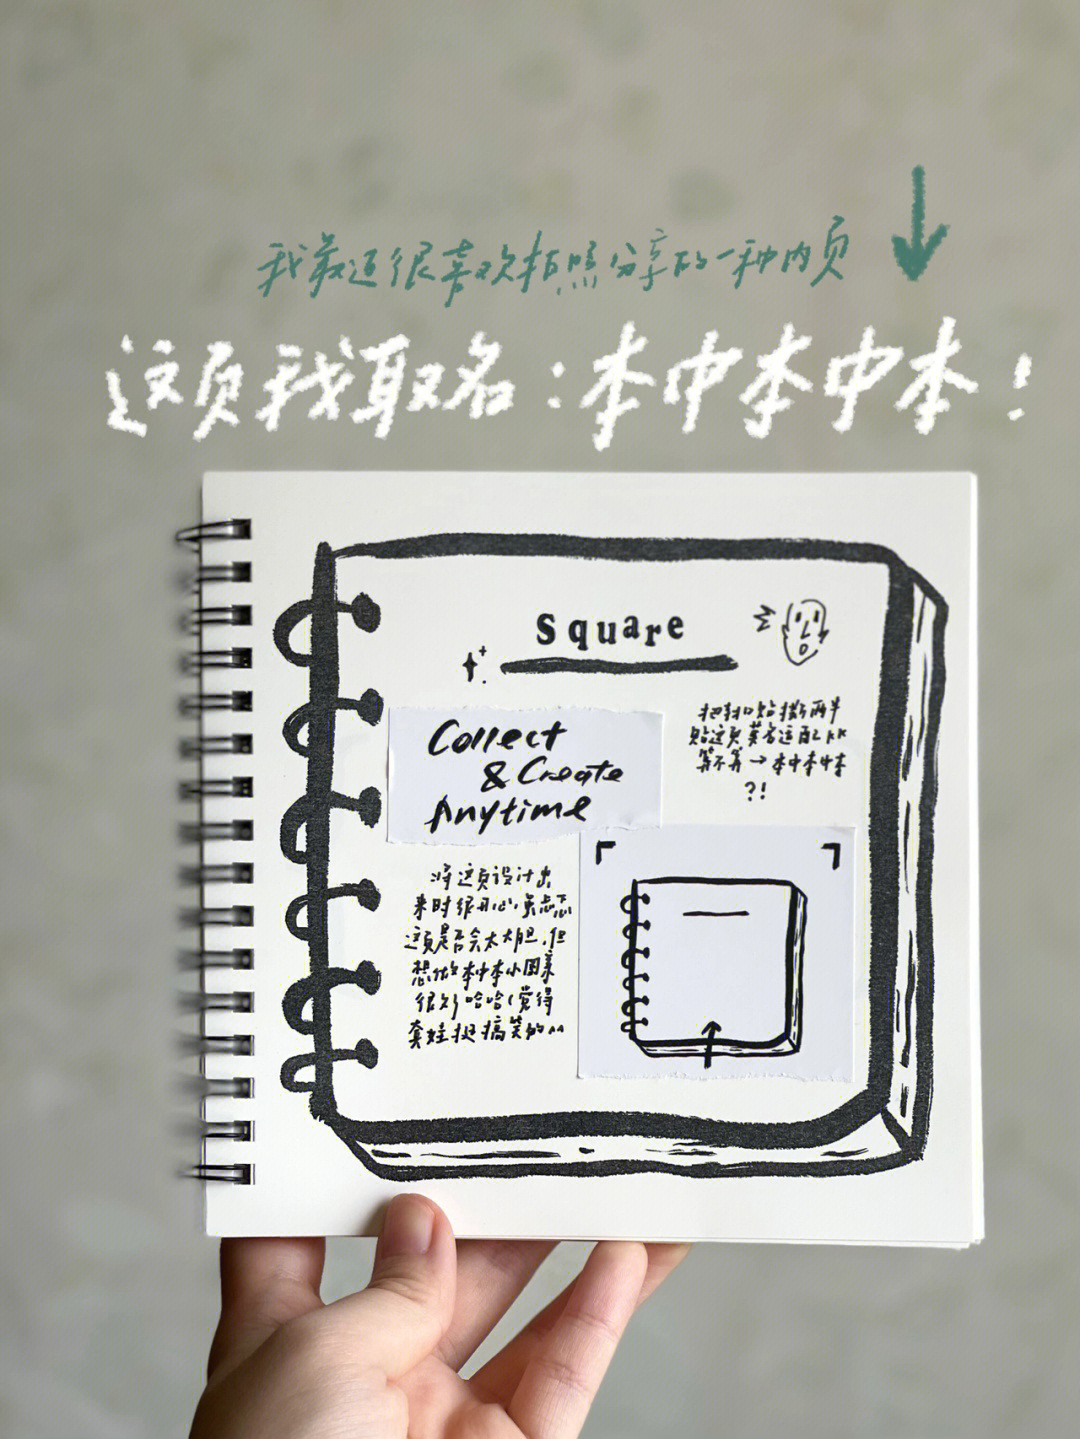 我最近很喜欢拍照分享的一种内页
这页我取名:本中本中本!
Square
把封口贴撕两半
贴这页莫名适配kk
算不算→本中本中本
?!
Collect
& Create
Anytime
将这页设计出
来时很开心,虽忐忑
这页是否会太大胆,但
想做本中本小图案
很久了哈哈(觉得
套娃挺搞笑的^^